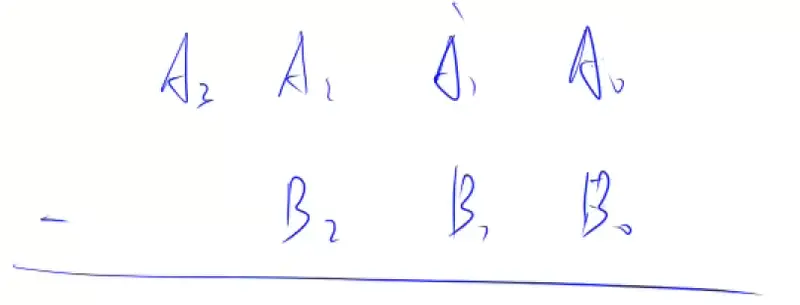 A₃ A₂ A₁ A₀
- B₂ B₁ B₀